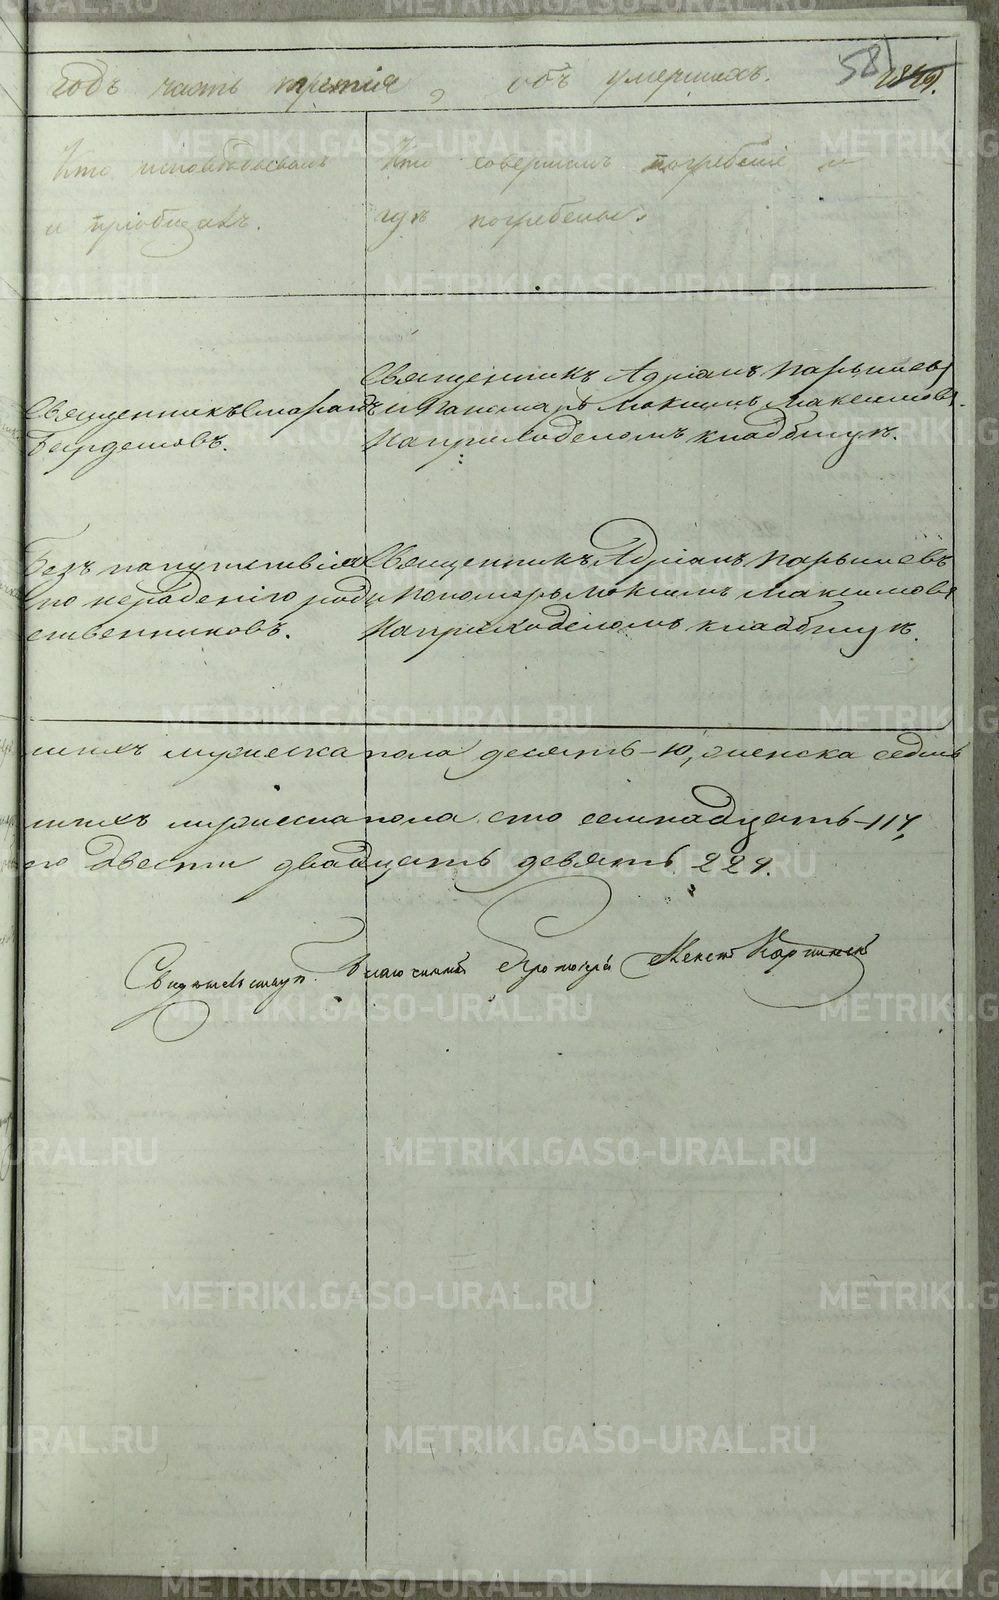 годъ часть третія, объ умершихъ.
581
Кто исповѣдывалъ
и пріобщалъ.
Кто совершалъ погребеніе и
гдѣ погребены.
Священникъ
Священникъ Адріанъ Парышевъ
и Пономарь Мокинъ Максимовъ
На приходскомъ кладбищѣ.
Безъ напутствія
по нерадѣнію род
ственниковъ.
Священникъ Адріанъ Парышевъ
и Пономарь Мокинъ Максимовъ
На приходскомъ кладбищѣ.
шихъ мужеска пола десять-10, женска седмь
шихъ мужеска пола сто семнадцать-117,
го двѣсти двадцать девять 229.
Свидѣтельствуетъ Благочинный
METRIKI.GASO-URAL.RU